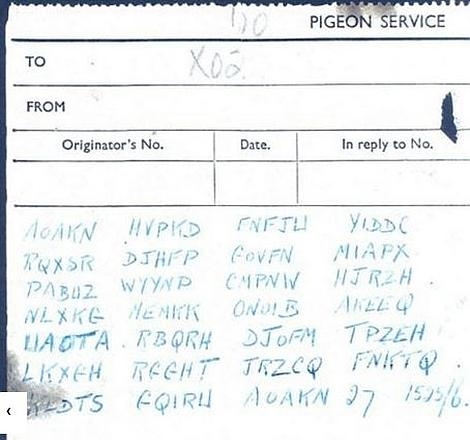 PIGEON SERVICE
TO X02
FROM
Originator's No. Date. In reply to No.
AOAKN HVPKD FNFJW YIDDC
RQXSR DJHFP GOVFN MIAPX
PABUZ WYYNP CMPNW HJRZH
NLXKG MEMKK ONOIB AKEEQ
UAOTA RBQRH DJOFM TPZEH
LKXGH RGGHT JRZCQ FNKTQ
GQIRW AOAKN 27 1525/6.